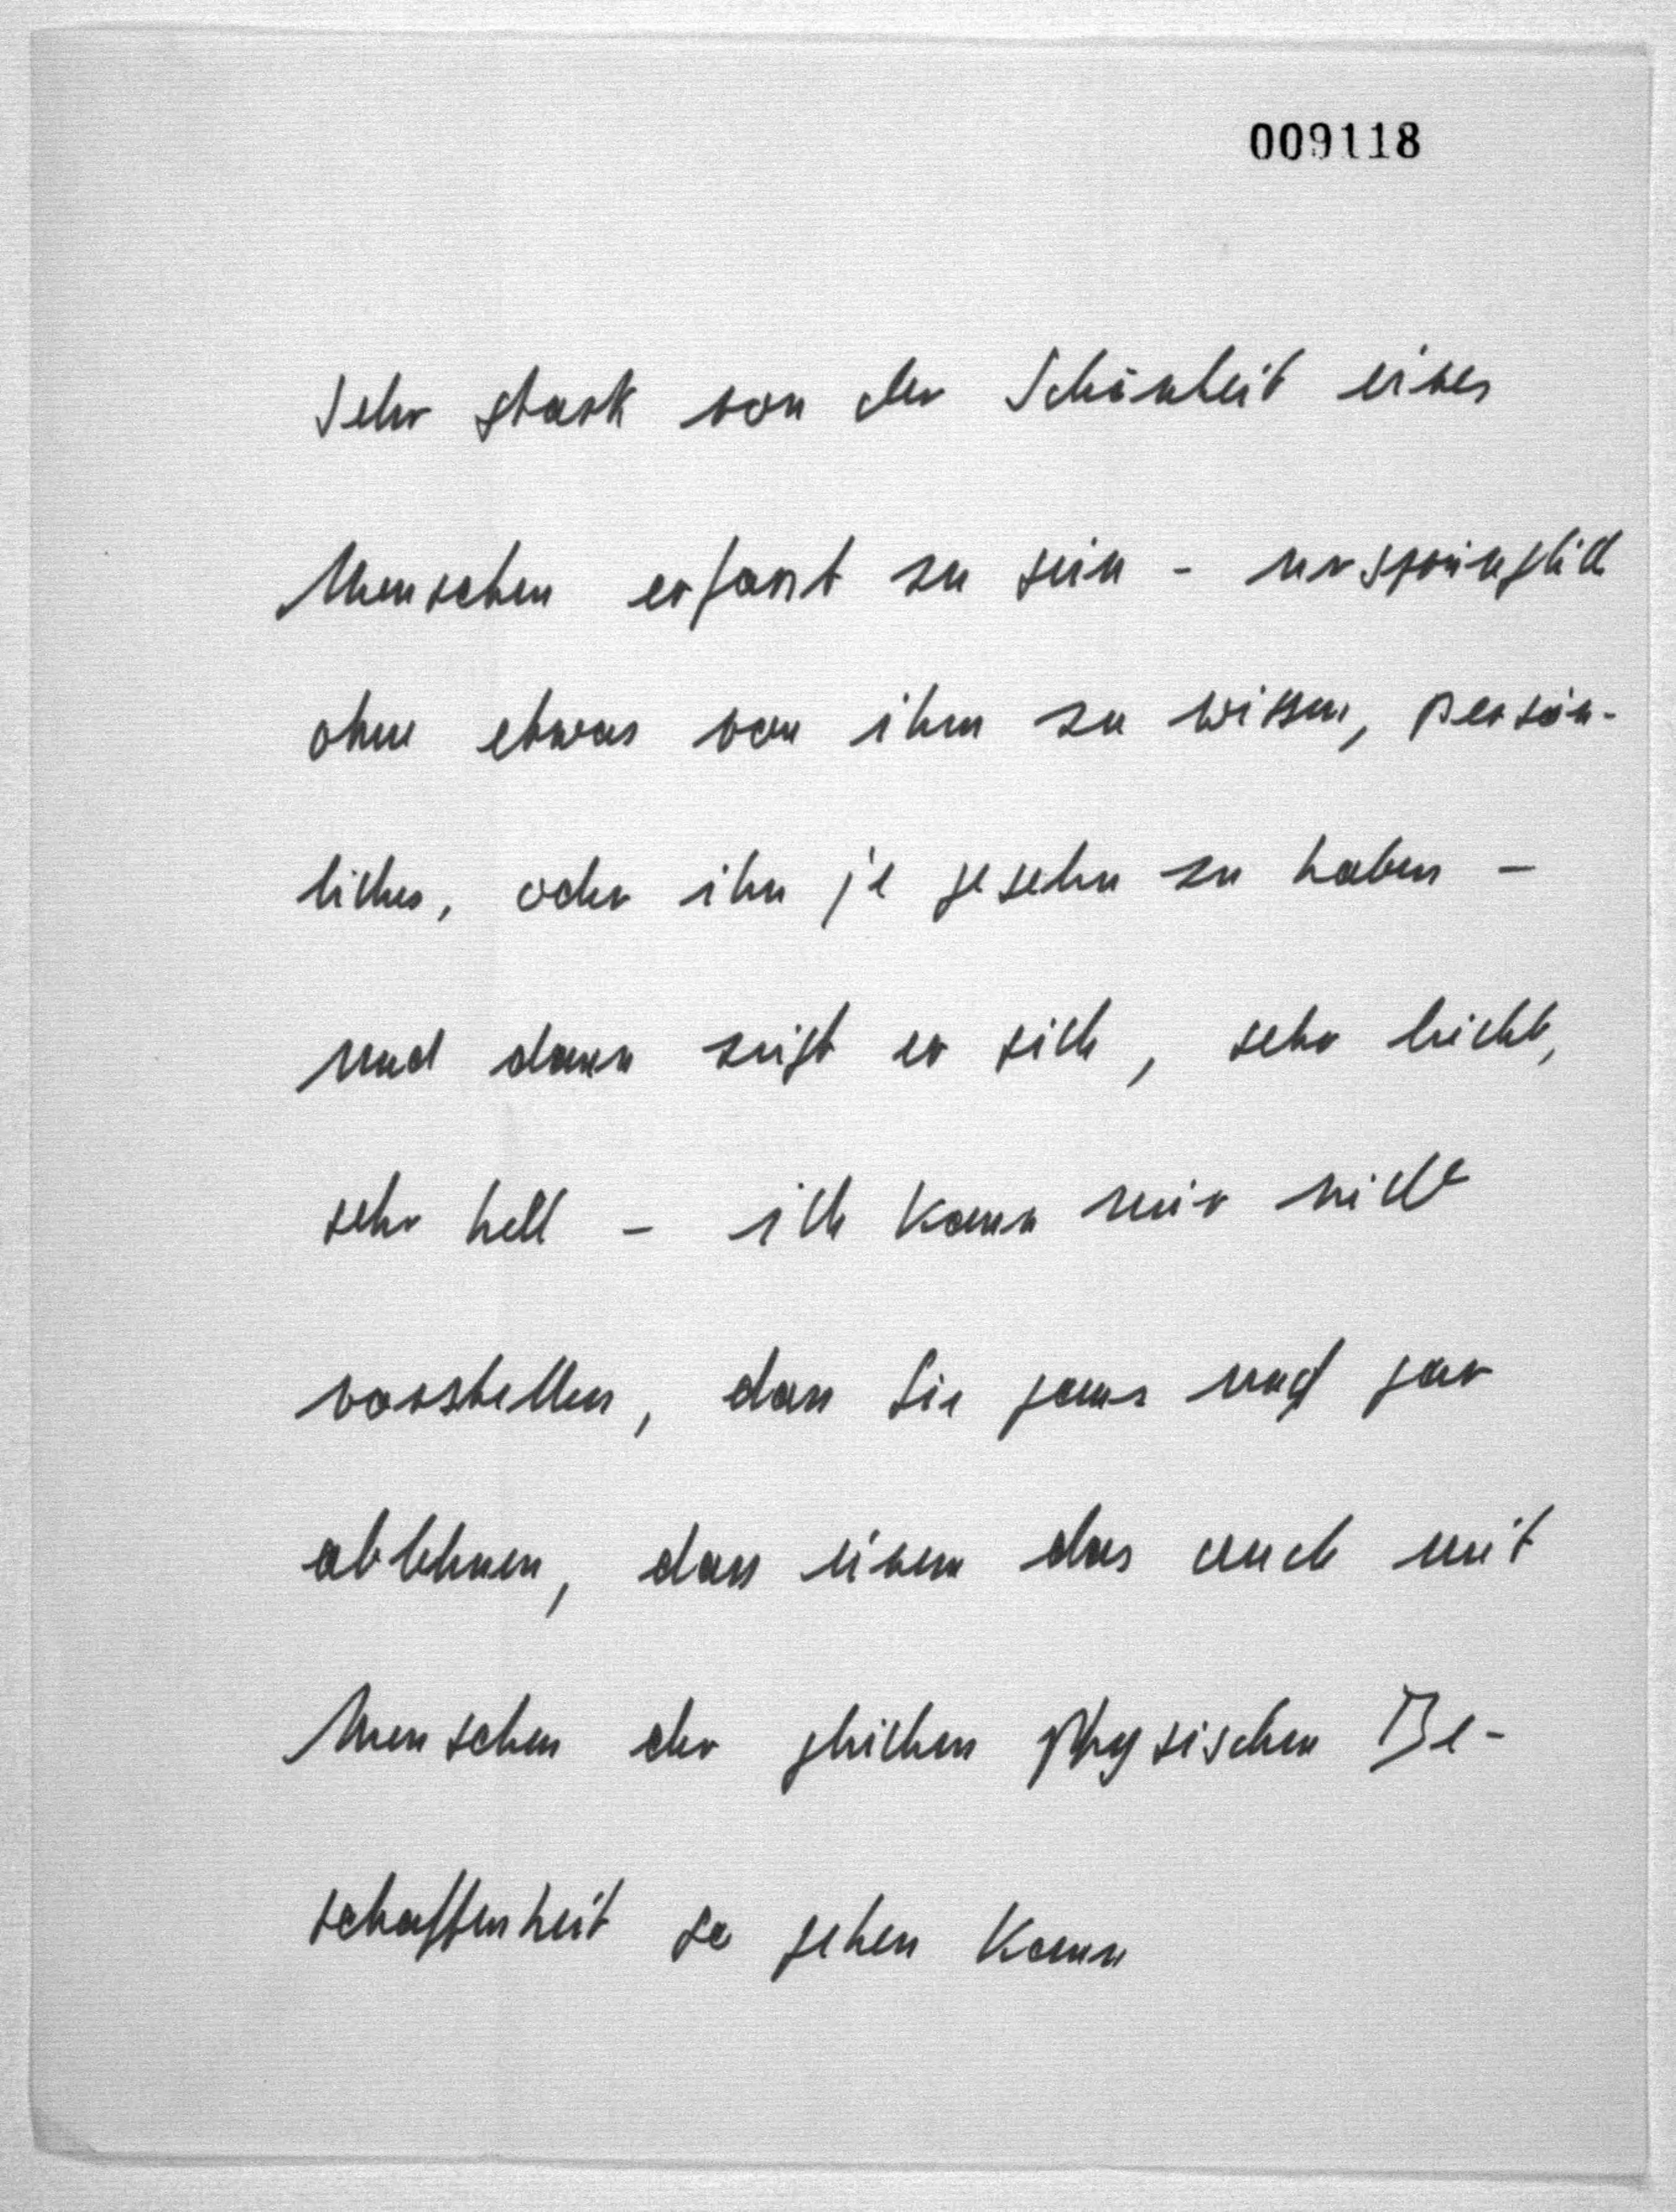 009118
Sehr stark von der Schönheit eines
Menschen erfasst zu sein - ursprünglich
ohne etwas von ihm zu wissen, persön-
liches, oder ihn je gesehn zu haben -
und dann zeigt er sich, sehr leicht,
sehr hell - ich kann mir nicht
vorstellen, dass Sie ganz und gar
ablehnen, dass einem das auch mit
Menschen der gleichen physischen Be-
schaffenheit so gehen kann